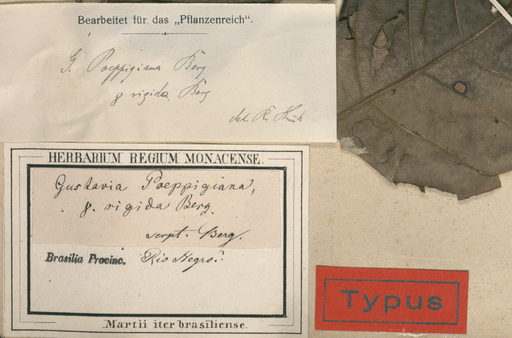 Bearbeitet für das „Pflanzenreich“.
G. Poeppigiana Berg
γ rigida Berg
det. R.
HERBARIUM REGIUM MONACENSE.
Gustavia Poeppigiana,
γ. rigida Berg.
scrpt. Berg.
Brasilia Provinc. Rio Negro.
Martii iter brasiliense.
Typus